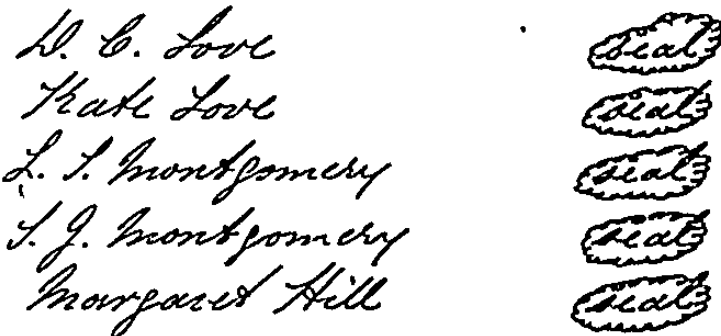 D. C. Love seal
Kate Love seal
L. S. Montgomery seal
S. J. Montgomery seal
Margaret Hill seal